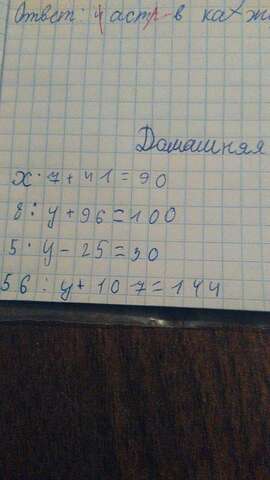 Ответ: 4 астр в каж
Домашняя
x · 7 + 41 = 90
8 : у + 96 = 100
5 · у - 25 = 30
56 : у + 107 = 144